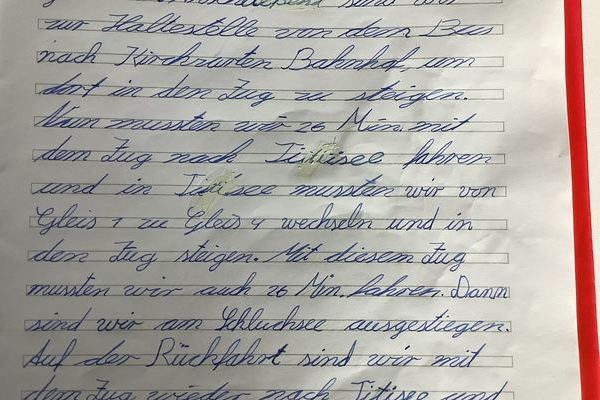 sind wir
zur Haltestelle von dem Bus
nach Kirchzarten Bahnhof, um
dort in den Zug zu steigen.
Nun mussten wir 26 Min. mit
dem Zug nach Titisee fahren
und in Titisee mussten wir von
Gleis 1 zu Gleis 4 wechseln und in
den Zug steigen. Mit diesem Zug
mussten wir auch 26 Min. fahren. Dann
sind wir am Schluchsee ausgestiegen.
Auf der Rückfahrt sind wir mit
dem Zug wieder nach Titisee und